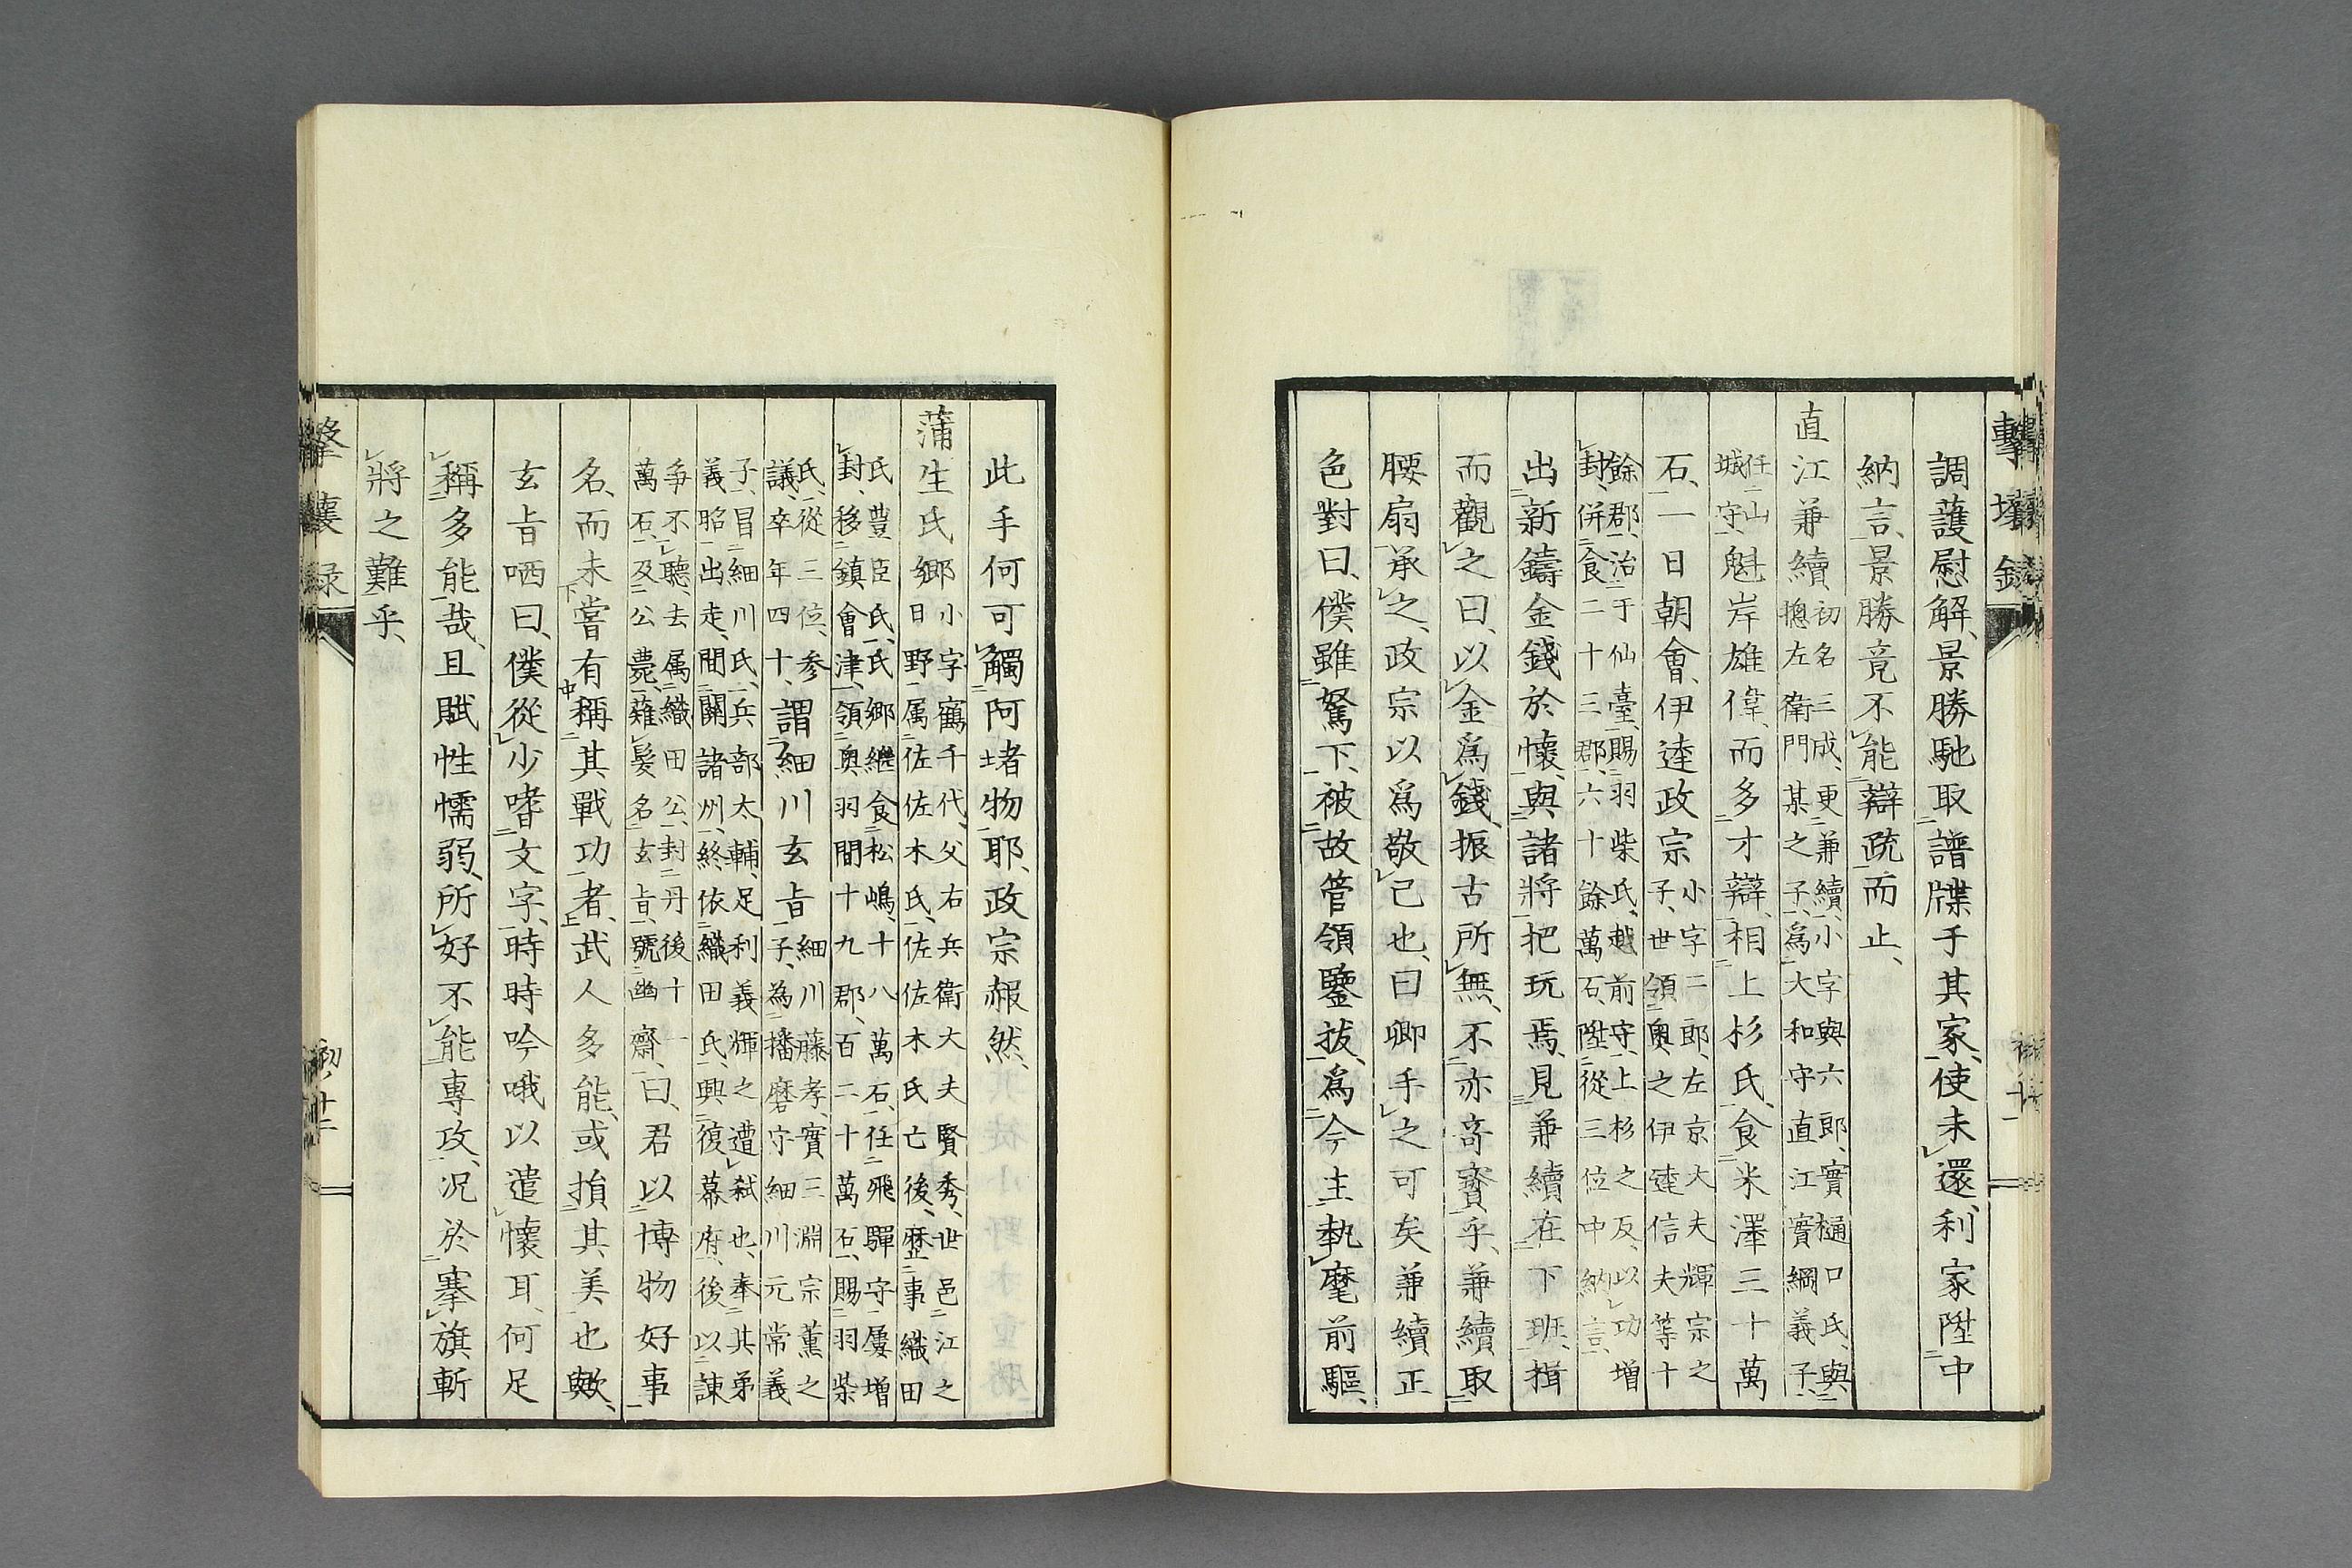 調護慰解、景勝馳取譜牒于其家、使未還、利家陞中
納言、景勝竟不能辯疏而止、
直江兼續初名三成、更兼續、小字與六郎、實樋口氏、與
摠左衛門某之子、爲大和守直江實綱義子、
任山
城守、魁岸雄偉、而多才辯、相上杉氏、食米澤三十萬
石、一日朝會、伊達政宗小字二郎、左京大夫輝宗之
子、世領奧之伊達信夫等十
餘郡、治于仙臺、賜羽柴氏、越前守、上杉之反、以功增
封、併食二十三郡、六十餘萬石、陞從三位中納言、
出新鑄金錢於懷、與諸將把玩焉、見兼續在下班、揖
而觀之曰、以金爲錢、振古所無、不亦奇寶乎、兼續取
腰扇承之、政宗以爲敬己也、曰卿手之可矣、兼續正
色對曰、僕雖駑下、被故管領鑒拔、爲今主執麾前驅、
此手何可觸阿堵物耶、政宗赧然、
蒲生氏鄉小字鶴千代、父右兵衛大夫賢秀、世邑江之
日野、属佐佐木氏、佐佐木氏亡後、歷事織田
氏豊臣氏、氏鄉繼食松嶋、十八萬石、任飛驒守、屢增
封、移鎮會津、領奧羽間十九郡、百二十萬石、賜羽柴
氏、從三位、参
議、卒年四十、謂細川玄旨細川藤孝、實三淵宗薫之
子、為播磨守細川元常義
子、冒細川氏、兵部太輔、足利義輝之遭弑也、奉其弟
義昭出走、間關諸州、終依織田氏、興復幕府、後以諫
争不聽、去属織田公、封丹後十一
萬石、及公薨、薙髮名玄旨、號幽齋、曰、君以博物好事
名、而未嘗有稱其戰功者、武人多能、或損其美也歟、
玄旨哂曰、僕從少嗜文字、時時吟哦以遣懷耳、何足
稱多能哉、且賦性懦弱、所好不能專攻、況於搴旗斬
將之難乎、